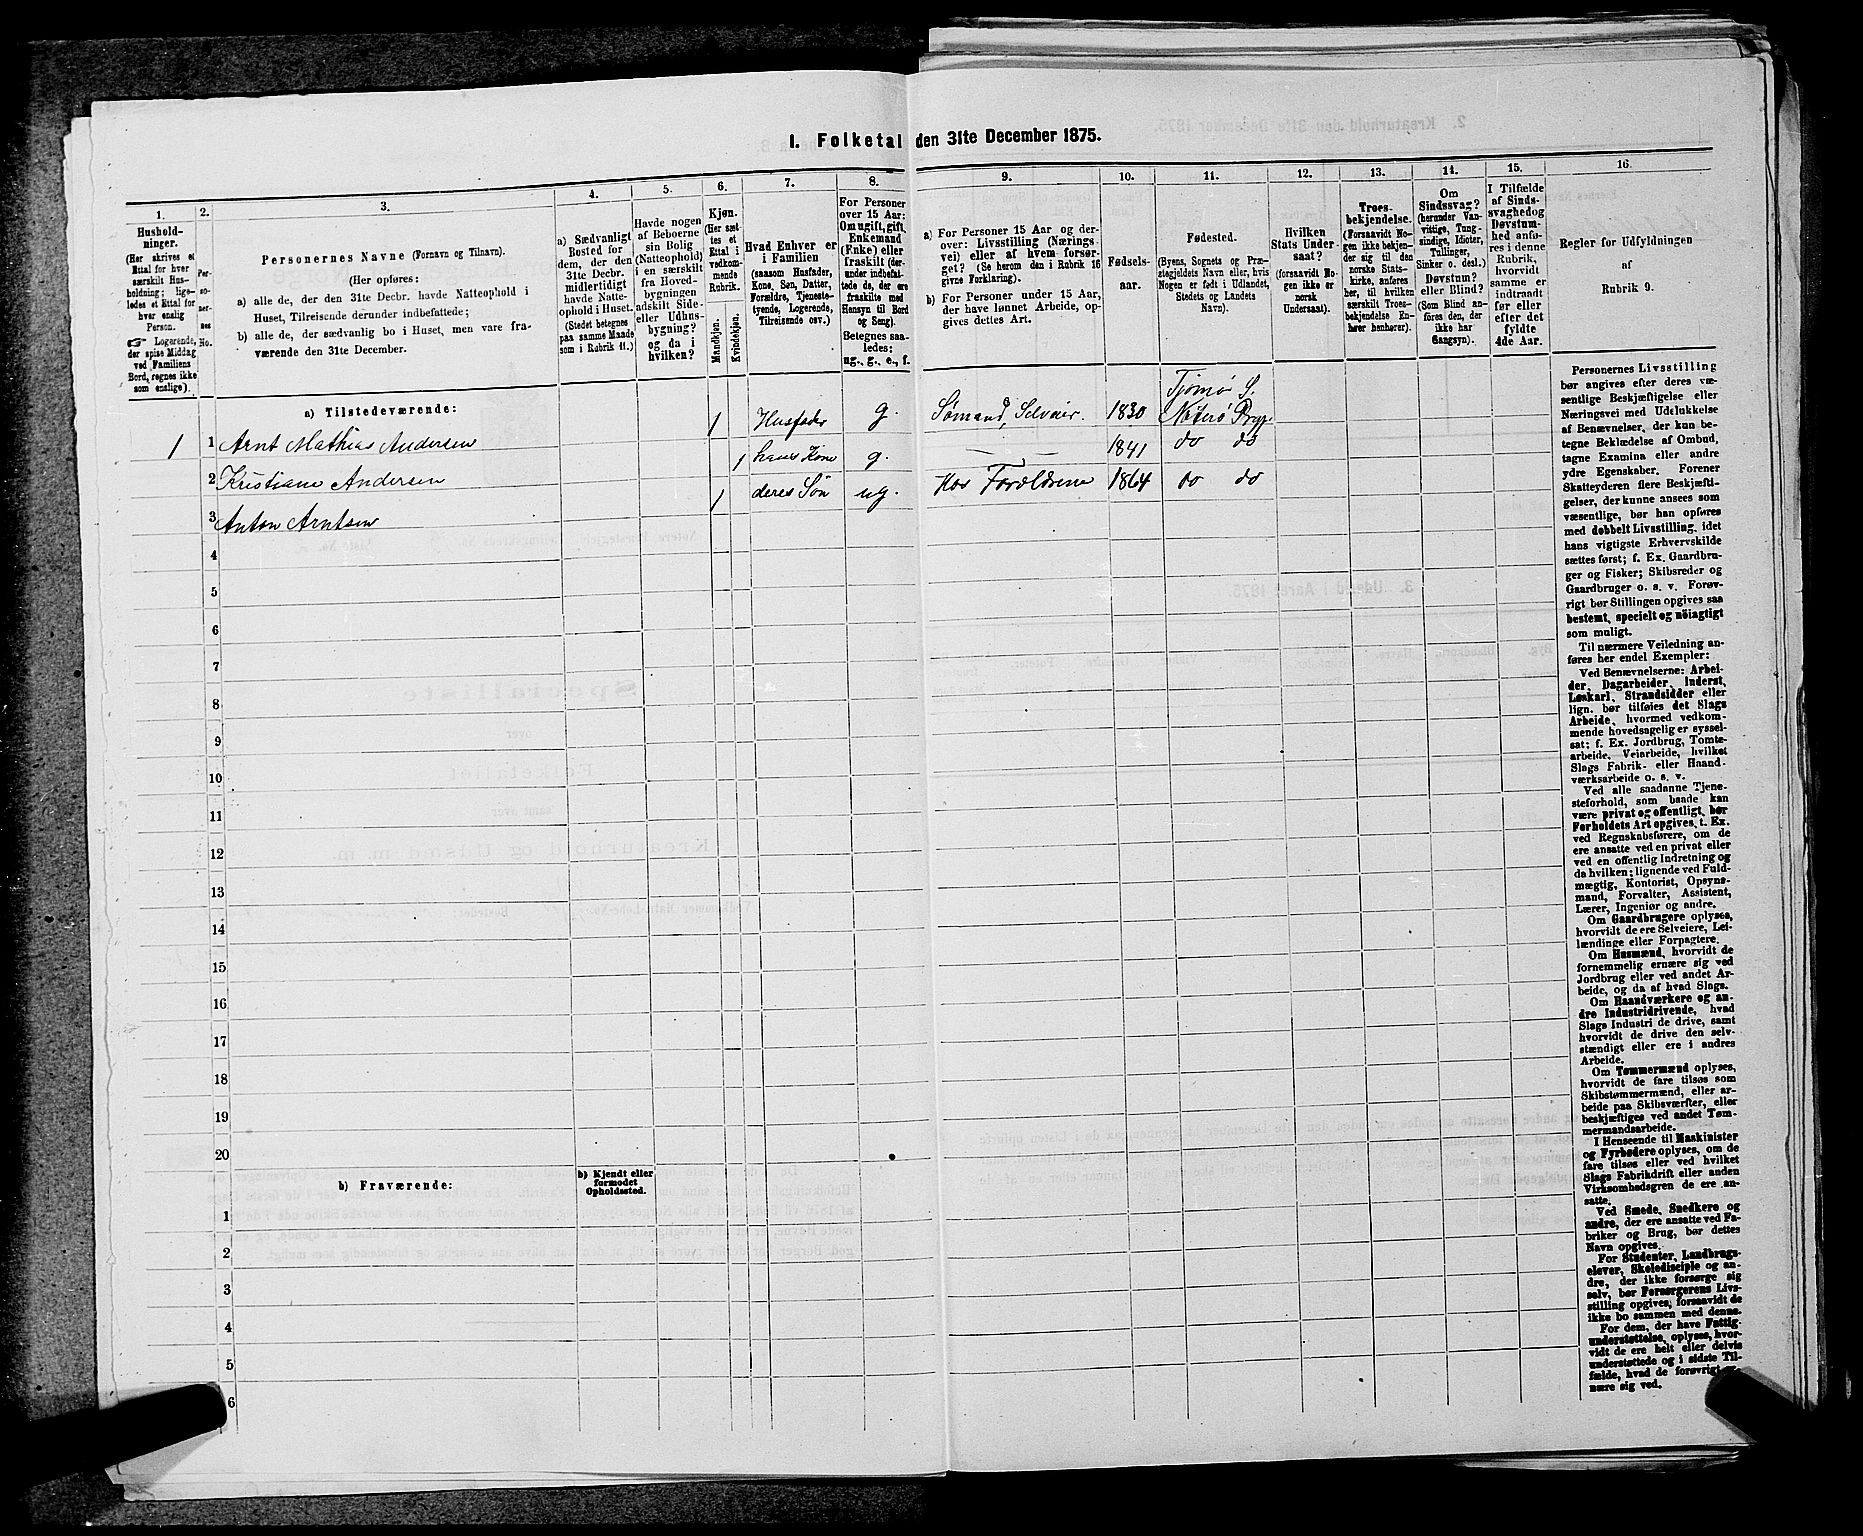 I. Folketal den 31te December 1875.
1.
2.
3.
4.
5.
6.
7.
8.
9.
10.
11.
12.
13.
14.
15.
16.
Hushold-
ninger.
(Her skrives et
Ettal for hver
særskilt Hus-
holdning; lige-
ledes et Ettal for
hver enslig
Person.
☞ Logerende,
der spise Middag
ved Familiens
Bord, regnes ikke
som enslige).
Per-
so-
ner-
nes
No.
Personernes Navne (Fornavn og Tilnavn).
(Her opføres:
a) alle de, der den 31te Decbr. havde Natteophold i
Huset, Tilreisende derunder indbefattede;
b) alle de, der sædvanlig bo i Huset, men vare fra-
værende den 31te December.
a) Sædvanligt
Bosted for
dem, der den
31te Decbr.
midlertidigt
havde Natte-
ophold i Huset.
(Stedet betegnes
paa samme Maade
som i Rubrik 11.)
Havde nogen
af Beboerne
sin Bolig
(Natteophold)
i en særskilt
fra Hoved-
bygningen
adskilt Side-
eller Udhus-
bygning?
og da i
hvilken?
Kjøn.
(Her sæt-
tes et
Ettal i
vedkom-
mende
Rubrik.
Mandkjøn.
Kvindekjøn.
Hvad Enhver er
i Familien
(saasom Husfader,
Kone, Søn, Datter,
Forældre, Tjeneste-
tyende, Logerende,
Tilreisende osv.)
For Personer
over 15 Aar:
Om ugift, gift,
Enkemand
(Enke) eller
fraskilt (der-
under indbefat-
tede de, der ere
fraskilte med
Hensyn til Bord
og Seng).
Betegnes saa-
ledes:
ug., g., e., f.
a) For Personer 15 Aar og der-
over: Livsstilling (Nærings-
vei) eller af hvem forsør-
get? (Se herom den i Rubrik 16
givne Forklaring).
b) For Personer under 15 Aar,
der have lønnet Arbeide, op-
gives dettes Art.
Fødsels-
aar.
Fødested.
(Byens, Sognets og Præ-
stegjeldets Navn eller, hvis
Nogen er født i Udlandet,
Stedets og Landets
Navn).
Hvilken
Stats Under-
saat?
(forsaavidt No-
gen ikke er
norsk
Undersaat).
Troes-
bekjendelse.
(Forsaavidt No-
gen ikke bekjen-
der sig til den
norske Stats-
kirke, anføres
her, til hvilken
særskilt Troes-
bekjendelse En-
hver henhører).
Om
Sindssvag?
(herunder Van-
vittige, Tung-
sindige, Idioter,
Tullinger,
Sinker o. desl.)
Døvstum?
eller Blind?
(Som Blind an-
føres den, der
ikke har
Gangsyn).
I Tilfælde
af Sinds-
svaghed og
Døvstum-
hed anføres
i denne
Rubrik,
hvorvidt
samme er
indtraadt
før eller
efter det
fyldte
4de Aar.
Regler for Udfyldningen
af
Rubrik 9.
a) Tilstedeværende:
1 1 Arnt Mathias Andersen 1 Husfader g. Sømand, Selveier. 1830 Tjømø S. Nøterø Prgj.
2 Kristiane Andersen 1 hans Kone g. 1841 do do
3 Anton Arntsen 1 deres Søn ug. Hos Forældrene 1864 do do
4
5
6
7
8
9
10
11
12
13
14
15
16
17
18
19
20
b) Fraværende:
b) Kjendt eller
formodet
Opholdssted.
1
2
3
4
5
6
Personernes Livsstilling
bør angives efter deres væ-
sentlige Beskjæftigelse eller
Næringsvei med Udelukkelse
af Benævnelser, der kun be-
tegne Beklædelse af Ombud,
tagne Examina eller andre
ydre Egenskaber. Forener
Skatteyderen flere Beskjæfti-
gelser, der kunne ansees som
væsentlige, bør han opføres
med dobbelt Livsstilling, idet
hans vigtigste Erhvervskilde
sættes først; f. Ex. Gaardbru-
ger og Fisker; Skibsreder og
Gaardbruger o. s. v. Forøv-
rigt bør Stillingen opgives saa
bestemt, specielt og nøiagtigt
som muligt.
Til nærmere Veiledning an-
føres her endel Exempler:
Ved Benævnelserne: Arbei-
der, Dagarbeider, Inderst,
Løskarl, Strandsidder eller
lign. bør tilføies det Slags
Arbeide, hvormed vedkom-
mende hovedsagelig er syssel-
sat; f. Ex. Jordbrug, Tomte-
arbeide, Veiarbeide, hvilket
Slags Fabrik- eller Haand-
værksarbeide o. s. v.
Ved alle saadanne Tjene-
steforhold, som baade kan
være privat og offentligt, bør
Forholdets Art opgives, f. Ex.
ved Regnskabsførere, om de
ere ansatte ved en privat eller
ved en offentlig Indretning og
da hvilken; lignende ved Fuld-
mægtig, Kontorist, Opsyns-
mand, Forvalter, Assistent,
Lærer, Ingeniør og andre.
Om Gaardbrugere oplyses,
hvorvidt de ere Selveiere, Lei-
lændinge eller Forpagtere.
Om Husmænd, hvorvidt de
fornemmelig ernære sig ved
Jordbrug eller ved andet Ar-
beide, og da af hvad Slags.
Om Haandværkere og an-
dre Industridrivende, hvad
Slags Industri de drive, samt
hvorvidt de drive den selv-
stændigt eller ere i andres
Arbeide.
Om Tømmermænd oplyses,
hvorvidt de fare tilsøs som
Skibstømmermænd, eller ar-
beide paa Skibsværfter, eller
beskjæftiges ved andet Tøm-
mermandsarbeide.
I Henseende til Maskinister
og Fyrbødere oplyses, om de
fare tilsøs eller ved hvilket
Slags Fabrikdrift eller anden
Virksomhedsgren de ere an-
satte.
Ved Smede, Snedkere og
andre, der ere ansatte ved Fa-
briker og Brug, bør dettes
Navn opgives.
For Studenter, Landbrugs-
elever, Skoledisciple og an-
dre, der ikke forsørge sig
selv, bør Forsørgerens Livs-
stilling opgives, forsaavidt de
ikke bo sammen med denne.
For dem, der have Fattig-
understøttelse, oplyses, hvor-
vidt de ere helt eller delvis
understøttede og i sidste Til-
fælde, hvad de forøvrigt er-
nære sig ved.